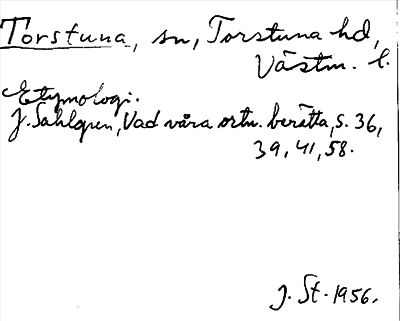 Torstuna, sn, Torstuna hd,
Västm. l.
Etymologi.
J. Sahlgren, Vad våra ortn. berätta, s. 36,
39, 41, 58.
J. St. 1956.